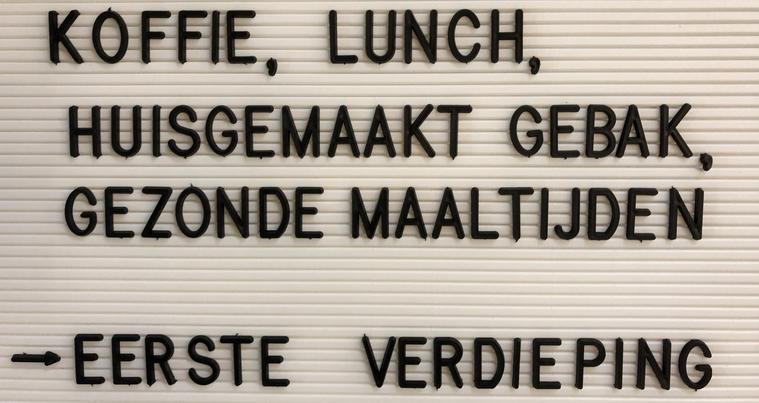 KOFFIE, LUNCH,
HUISGEMAAKT GEBAK,
GEZONDE MAALTIJDEN
→ EERSTE VERDIEPING